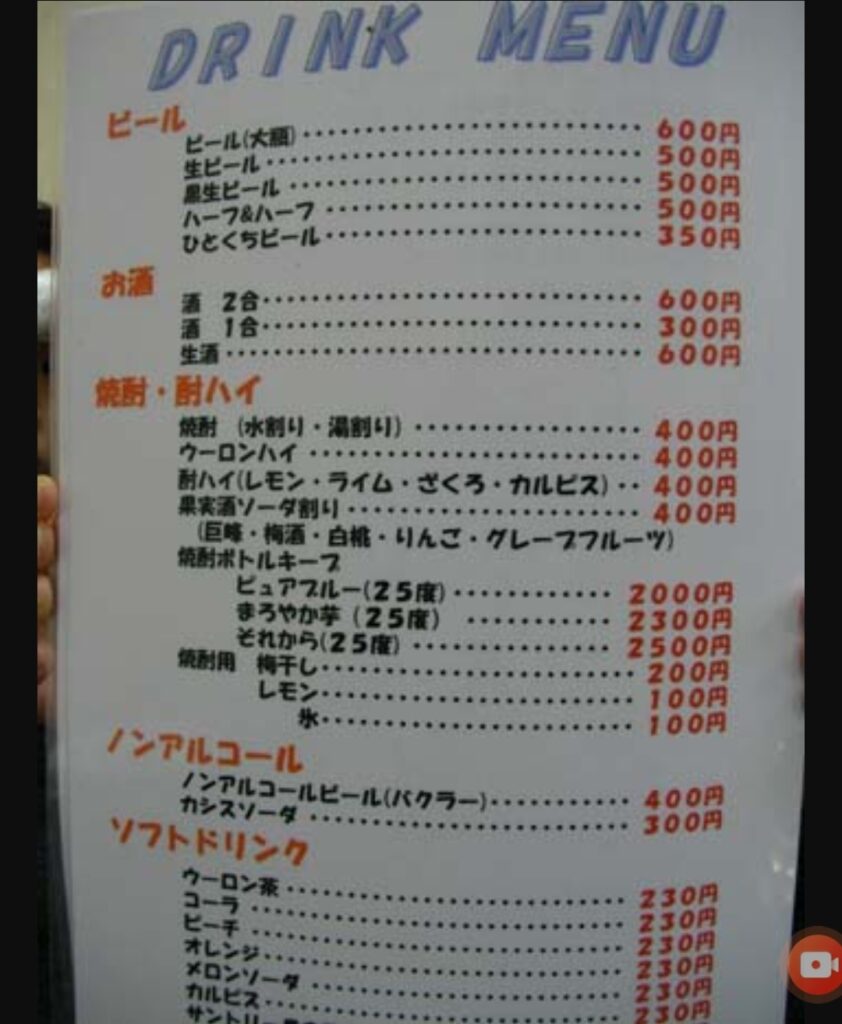 DRINK MENU
ビール
ビール(大瓶)‥‥‥‥‥‥‥‥‥‥‥‥‥ 600円
生ビール‥‥‥‥‥‥‥‥‥‥‥‥‥‥ 500円
黒生ビール ‥‥‥‥‥‥‥‥‥‥‥‥‥ 500円
ハーフ&ハーフ ‥‥‥‥‥‥‥‥‥‥‥ 500円
ひとくちビール‥‥‥‥‥‥‥‥‥‥‥ 350円
お酒
酒 2合‥‥‥‥‥‥‥‥‥‥‥‥‥‥ 600円
酒 1合‥‥‥‥‥‥‥‥‥‥‥‥‥‥ 300円
生酒‥‥‥‥‥‥‥‥‥‥‥‥‥‥‥ 600円
焼酎・酎ハイ
焼酎 (水割り・湯割り) ‥‥‥‥‥‥‥‥ 400円
ウーロンハイ ‥‥‥‥‥‥‥‥‥‥‥‥ 400円
酎ハイ(レモン・ライム・ざくろ・カルピス) ‥ 400円
果実酒ソーダ割り‥‥‥‥‥‥‥‥‥‥ 400円
(巨峰・梅酒・白桃・りんご・グレープフルーツ)
焼酎ボトルキープ
ピュアブルー(25度) ‥‥‥‥‥‥ 2000円
まろやか芋 (25度) ‥‥‥‥‥‥ 2300円
それから(25度) ‥‥‥‥‥‥‥ 2500円
焼酎用 梅干し‥‥‥‥‥‥‥‥‥‥‥ 200円
レモン‥‥‥‥‥‥‥‥‥‥‥ 100円
氷‥‥‥‥‥‥‥‥‥‥‥ 100円
ノンアルコール
ノンアルコールビール(バクラー)‥‥‥‥‥ 400円
カシスソーダ ‥‥‥‥‥‥‥‥‥‥‥ 300円
ソフトドリンク
ウーロン茶 ‥‥‥‥‥‥‥‥‥‥‥‥ 230円
コーラ ‥‥‥‥‥‥‥‥‥‥‥‥‥ 230円
ピーチ ‥‥‥‥‥‥‥‥‥‥‥‥‥ 230円
オレンジ‥‥‥‥‥‥‥‥‥‥‥‥‥ 230円
メロンソーダ ‥‥‥‥‥‥‥‥‥‥‥ 230円
カルピス‥‥‥‥‥‥‥‥‥‥‥‥‥ 230円
サントリー